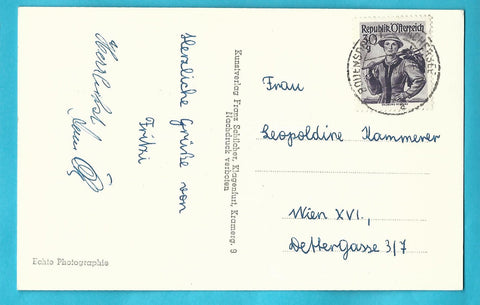 Herzliche Grüße von
Fritzi
Kunstverlag Franz Schilcher, Klagenfurt, Kramerg. 9
Nachdruck verboten
Echte Photographie
Republik Österreich
30 g
Frau
Leopoldine Kammerer
Wien XVI.,
Dettergasse 3/7